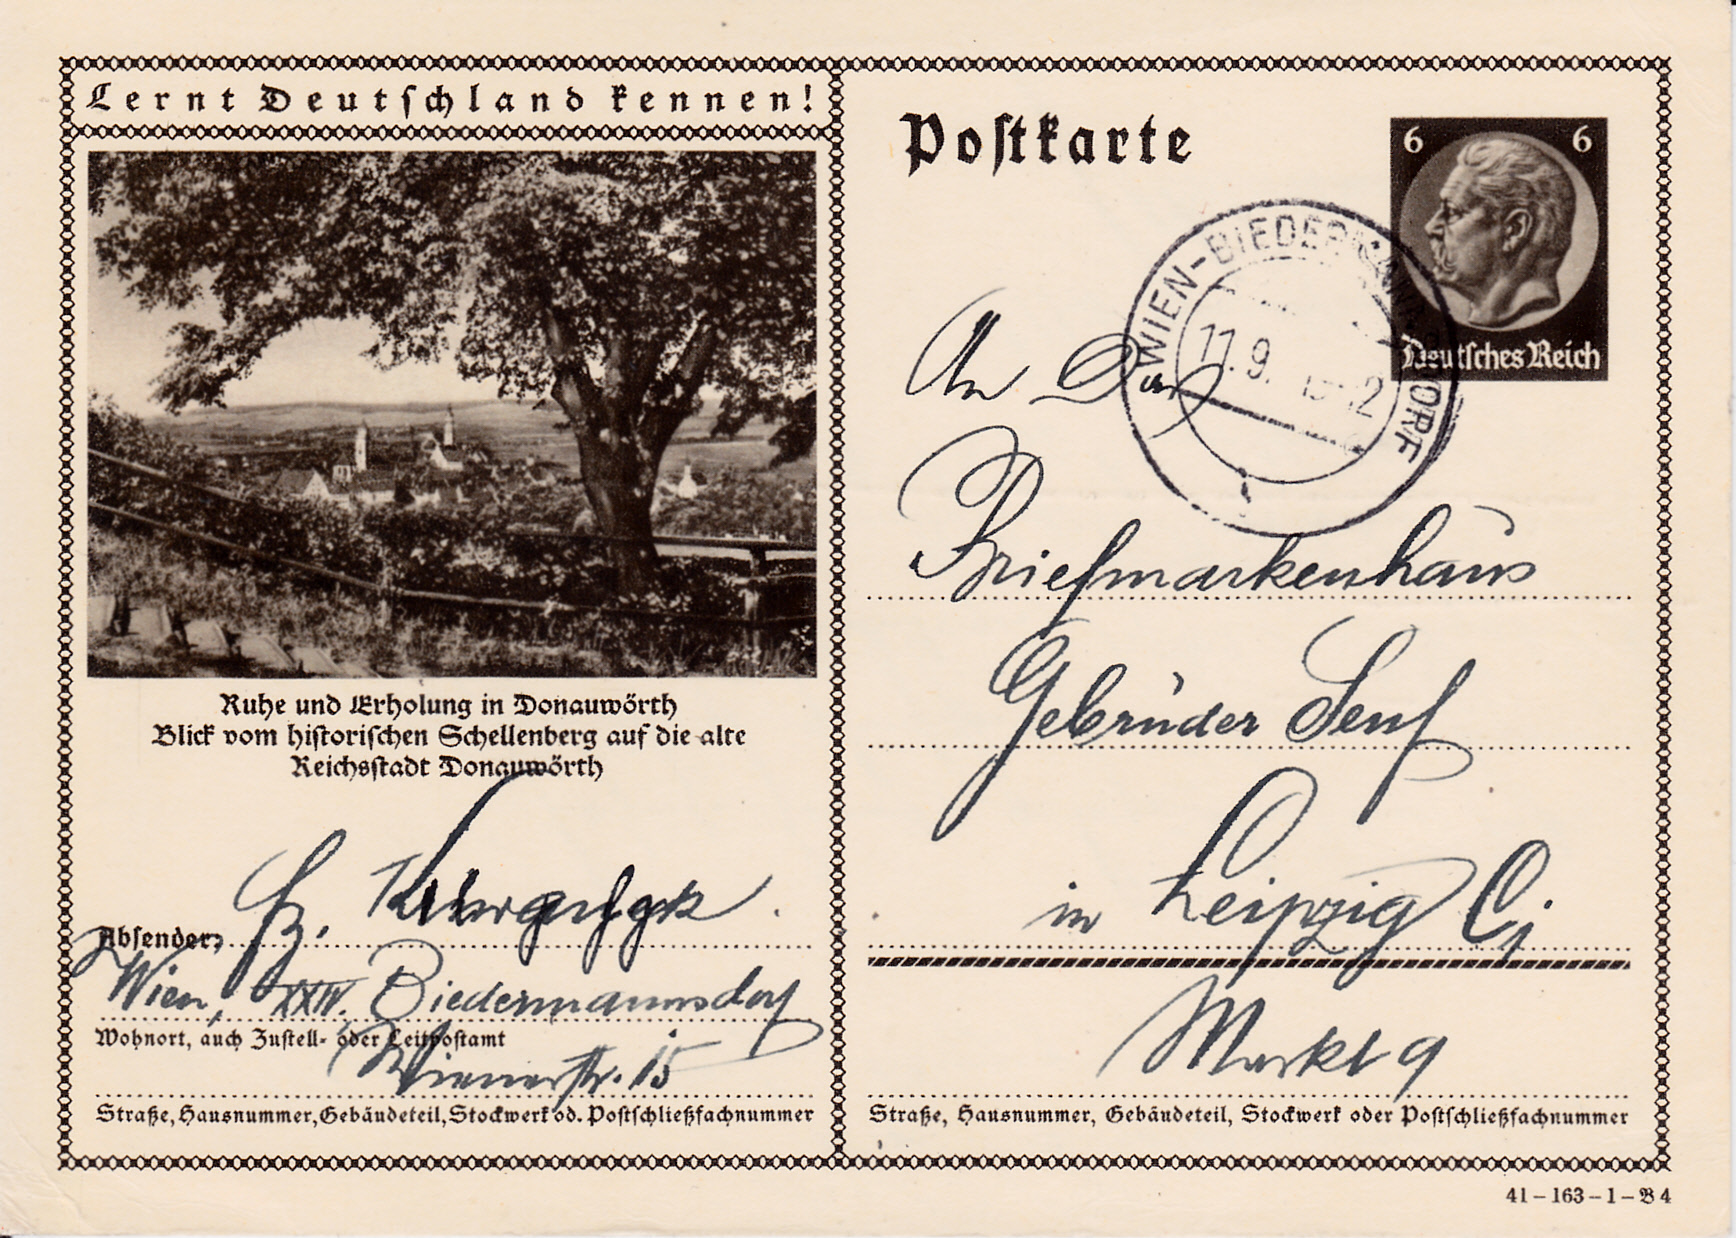 Lernt Deutschland kennen!
Ruhe und Erholung in Donauwörth
Blick vom historischen Schellenberg auf die alte
Reichsstadt Donauwörth
Absender:
Wien, XXIV. Biedermannsdorf
Wohnort, auch Zustell- oder Leitpostamt
Wienerstr. 15
Straße, Hausnummer, Gebäudeteil, Stockwerk od. Postschließfachnummer
Postkarte
6 6
Deutsches Reich
WIEN-BIEDERMANNSDORF
An Das
Briefmarkenhaus
Gebrüder Senf
in Leipzig C1
Markt 9
Straße, Hausnummer, Gebäudeteil, Stockwerk oder Postschließfachnummer
41-163-1-B 4